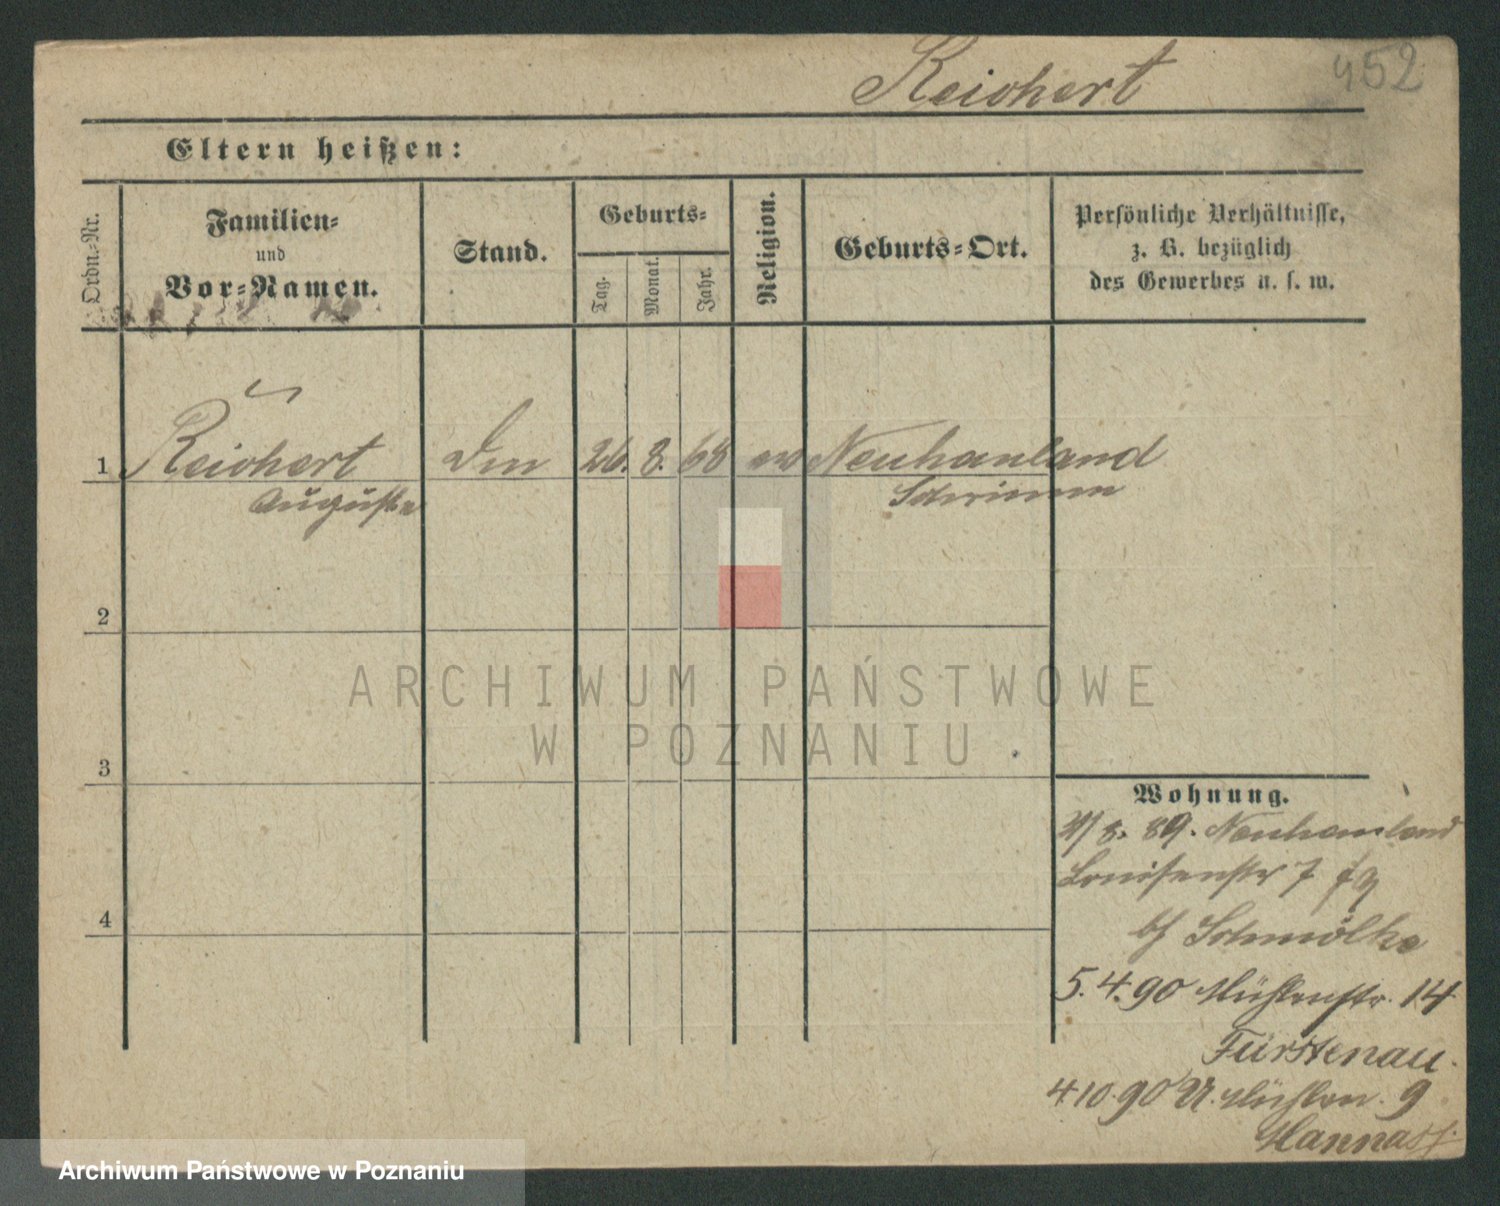 Reichert
452
Eltern heißen:
Ordn.-Nr.
Familien-
und
Vor-Namen.
Stand.
Geburts-
Tag.
Monat.
Jahr.
Religion.
Geburts-Ort.
Persönliche Verhältnisse,
z. B. bezüglich
des Gewerbes u. s. w.
1 Reichert 26. 8. 68 ev Neuhauland
Auguste Schrimm
2
3
4
Wohnung.
8. 89. Neuhauland
Louisenstr 7
b/ Schmölke
5. 4. 90 Mühlenstr. 14
Fürstenau.
4 10. 90 U. Mühlen. 9
ARCHIWUM PAŃSTWOWE
W POZNANIU
Archiwum Państwowe w Poznaniu